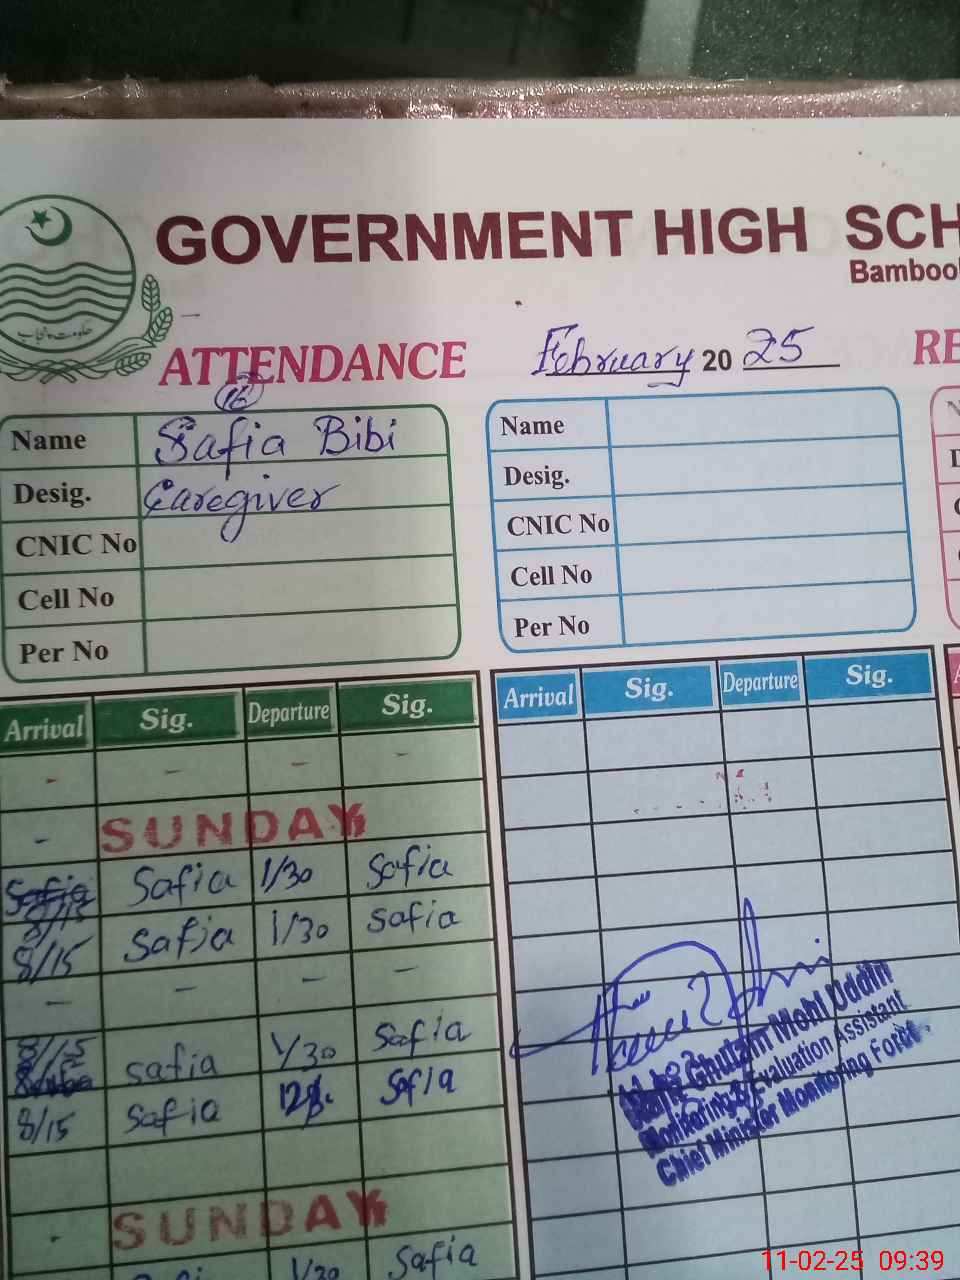 GOVERNMENT HIGH SCH
Bambool
حکومت پنجاب
ATTENDANCE February 20 25 RE
16
Name Safia Bibi
Desig. Caregiver
CNIC No
Cell No
Per No
Name
Desig.
CNIC No
Cell No
Per No
Arrival Sig. Departure Sig.
Arrival Sig. Departure Sig.
- - - -
- SUNDAY
8/15 Safia 1/30 Safia
8/15 Safia 1/30 Safia
- - - -
8/15 Safia 1/30 Safia
8/15 Safia 12 Safia
- SUNDAY
1/30 Safia
Ghulam Mohi Uddin
Monitoring & Evaluation Assistant
Chief Minister Monitoring Force
11-02-25 09:39